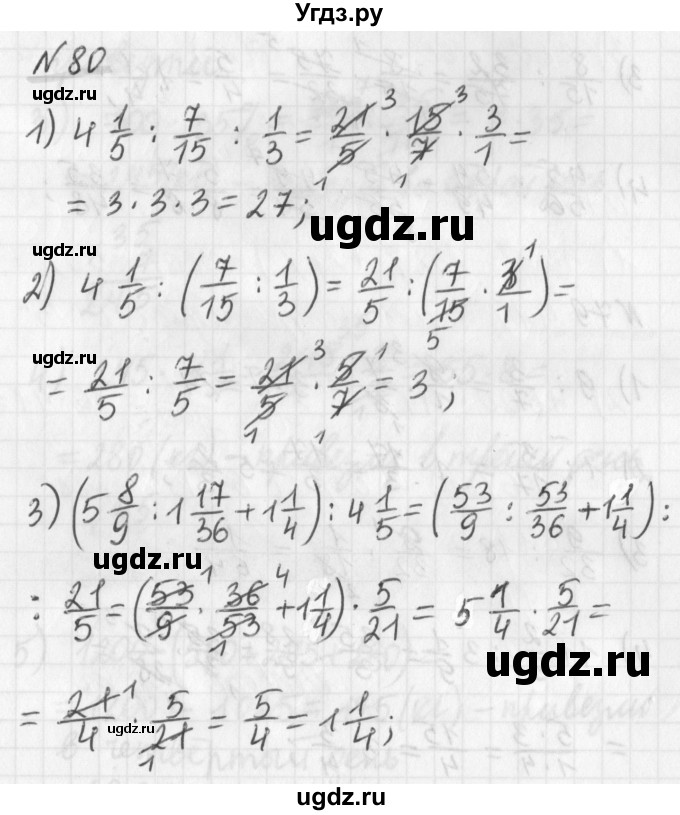 Угдз.ру
N 80
ugdz.ru
1) 4 1/5 : 7/15 : 1/3 = 21/5 · 15/7 · 3/1 =
= 3 · 3 · 3 = 27;
ugdz.ru
ugdz.ru
2) 4 1/5 : (7/15 : 1/3) = 21/5 : (7/15 · 3/1) =
ugdz.ru
= 21/5 : 7/5 = 21/5 · 5/7 = 3;
3) (5 8/9 : 1 17/36 + 1 1/4) : 4 1/5 = (53/9 : 53/36 + 1 1/4) :
ugdz.ru
: 21/5 = (53/9 · 36/53 + 1 1/4) · 5/21 = 5 1/4 · 5/21 =
ugdz.ru
ugdz.ru
= 21/4 · 5/21 = 5/4 = 1 1/4;
ugdz.ru
ugdz.ru